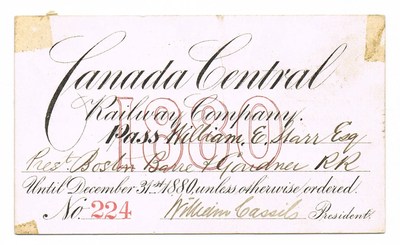 Canada Central
Railway Company.
1880
Pass William. E. Starr Esq
Prest Boston Barre & Gardner RR
Until December 31st 1880, unless otherwise ordered.
No. 224 William Cassils President.